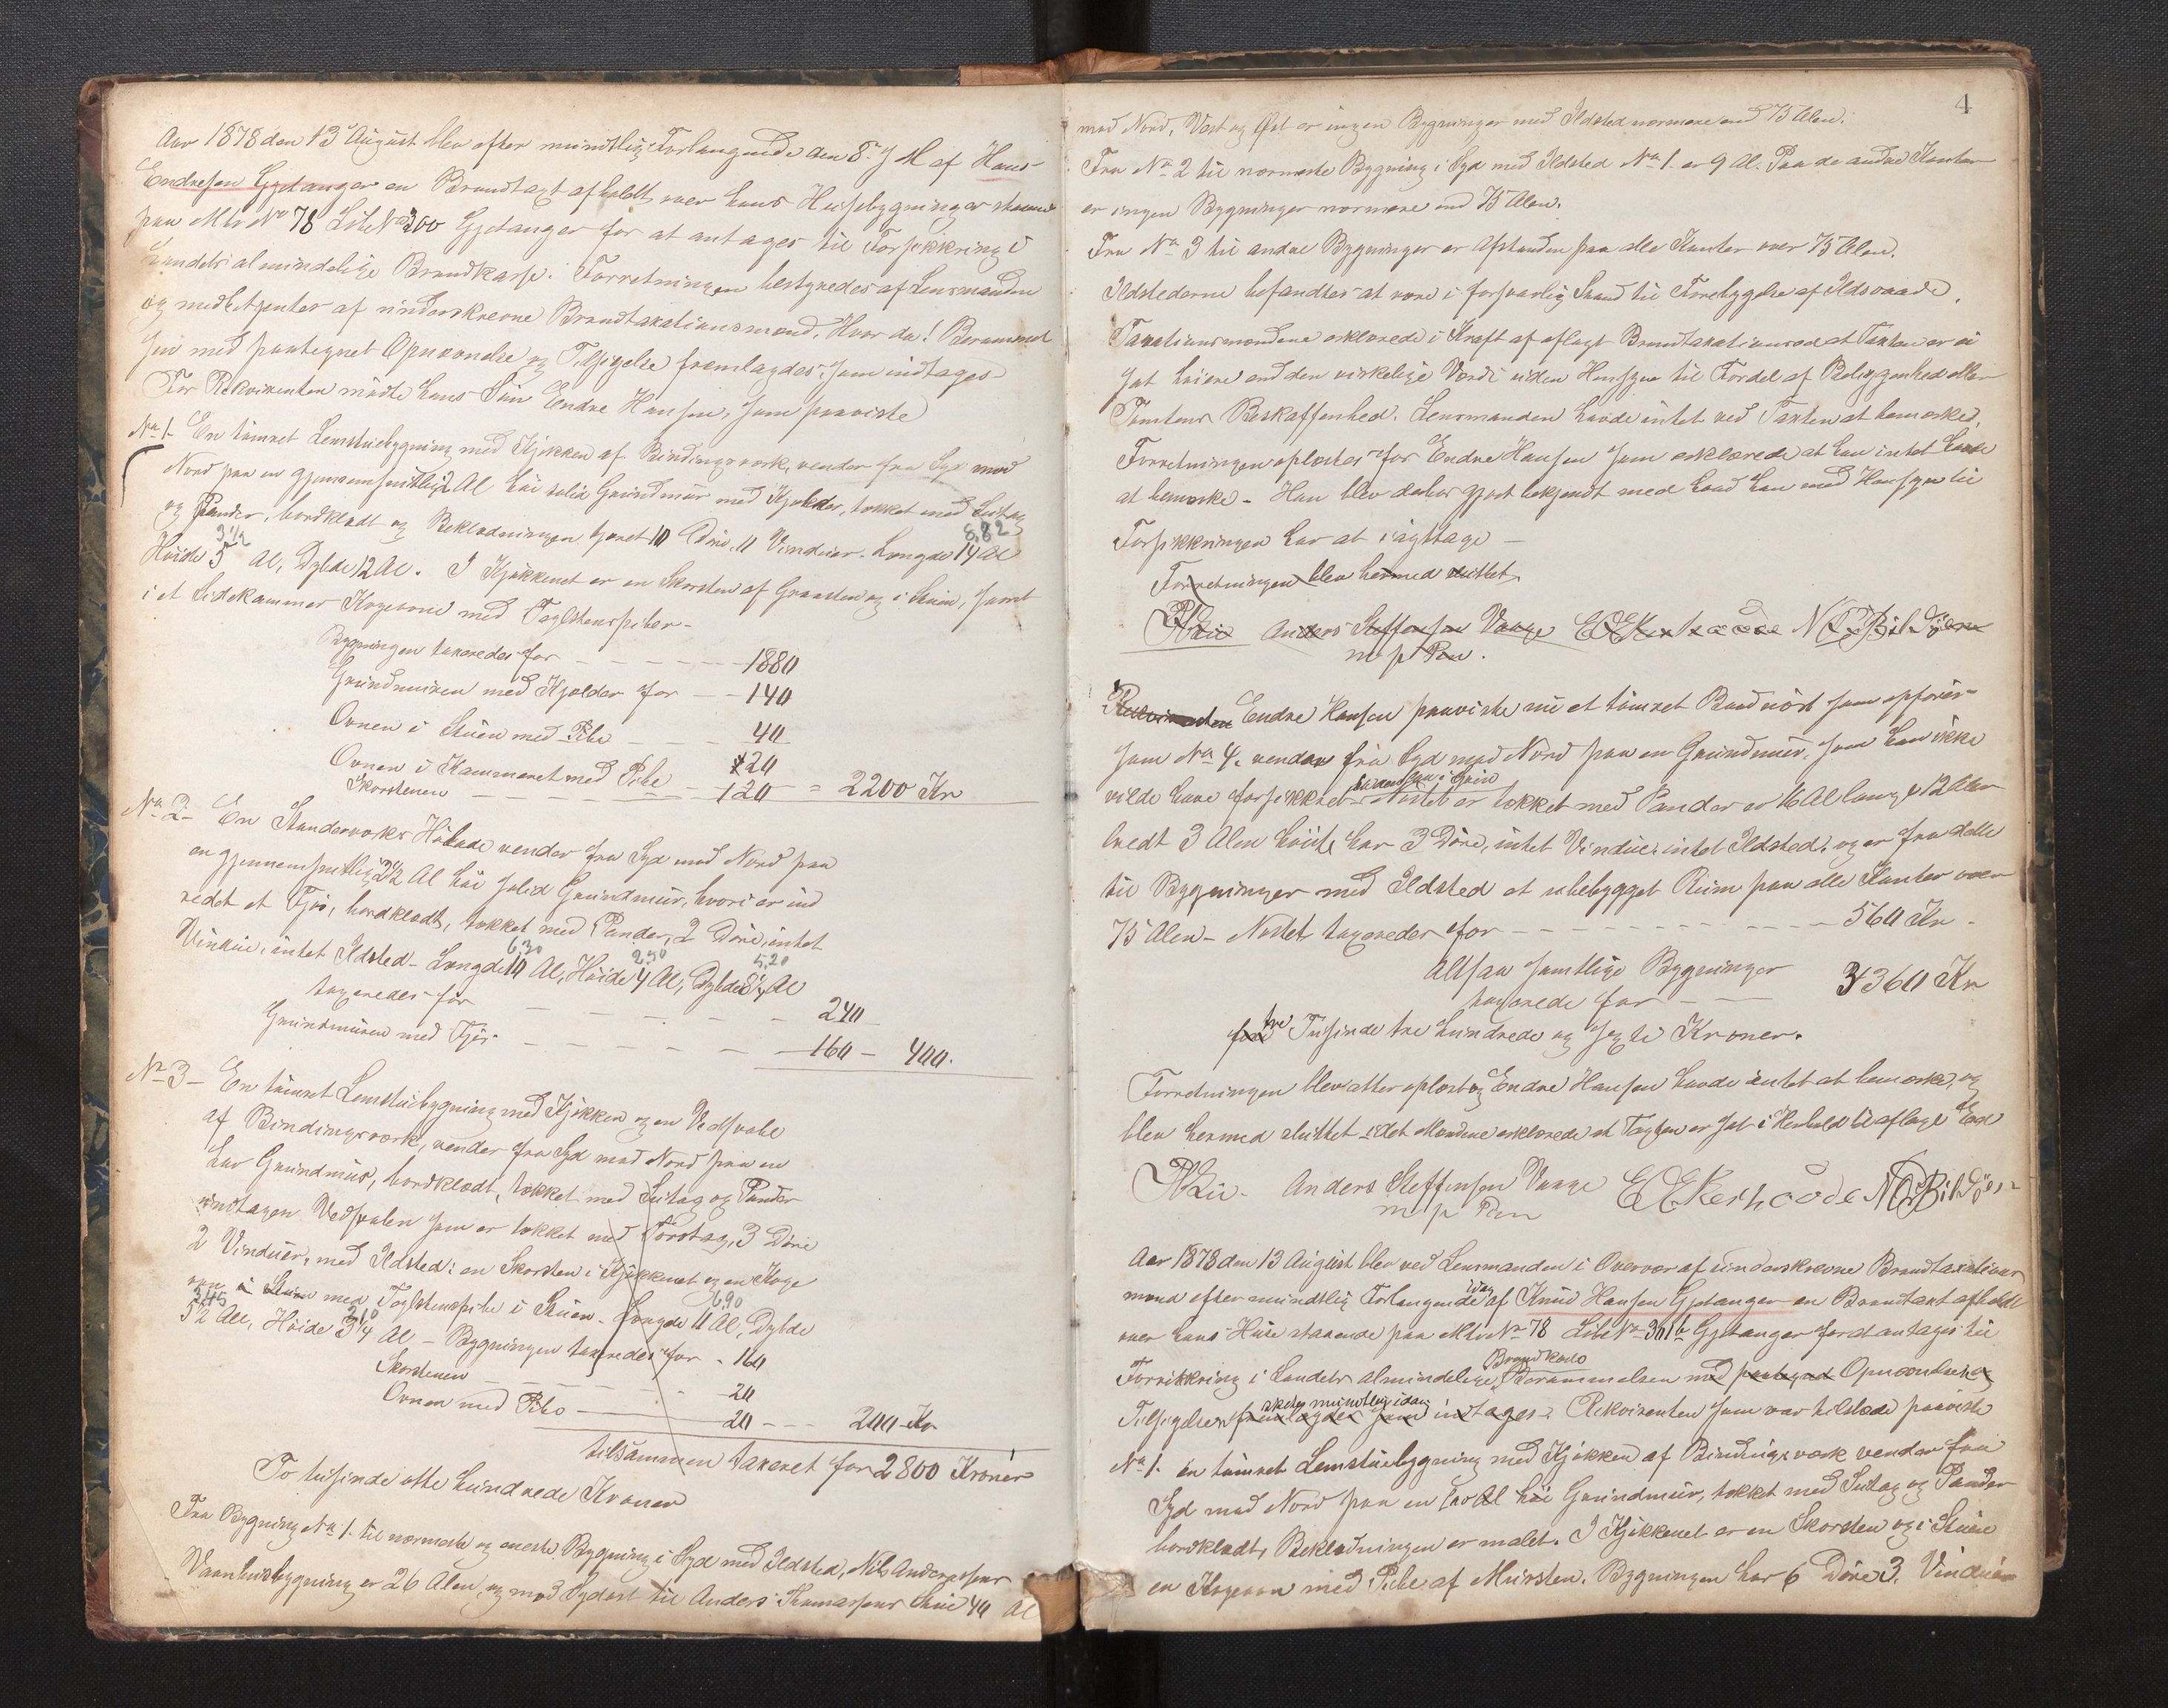 Aar 1878 den 13 August blev efter mundtlig Forlangende den 8de d M af Hans
Endresen Gjetanger en Brandtaxt afholdt over hans Husebygninger staaende
paa Mtr No 78 Løbe No 300 Gjetanger for at antages til Forsikkring i
Landets almindelige Brandkasse. Forretningen bestyredes af Lensmanden
og medbetjentes af underskrevne Brandtaxationsmænd. Hvor da! Berammel
sen med paategnet Opnævnelse og Tilsigelse fremlagdes som indtages
For Rekvirenten mødte hans Søn Endre Hansen, som paaviste
No 1. En tømret Lemstuebygning med Kjøkken af Bindingsværk, vender fra Syd mod
Nord paa en gjennemsnitlig 2 Al høi solid Grundmur med Kjelder, tækket med Sutag
og Pander, bordklædt og Beklædningen 10 Døre, 11 Vinduer. Længde 14 Al
3 1/2
8,82
Høide 5 Al, Dybde 12 Al. I Kjøkkenet er en Skorsten af Graasten og i Stuen, samt
i et Sidekammer Kogeovne med Taglstenspiber.
Bygningen taxeredes for 1880
Grundmuren med Kjælder for 140
Ovnen i Stuen med Pibe 40
Ovnen i Kammeret med Pibe 20
Skorstenen 120 = 2200 Kr
No 2. En Standerværks Hølade vender fra Syd mod Nord paa
en gjennemsnitlig 2 1/2 Al høi solid Grundmur, hvori er ind
redet et Fjøs, bordklædt, tækket med Pander, 2 Døre, intet
Vindue, intet Ildsted - Længde 10 Al, Høide 4 Al, Dybde 8 1/4 Al
6,30 2,50 5,20
taxeredes for 240
Grundmuren med Fjøs 160 - 400.
No 3 - En tømret Lemstuebygning med Kjøkken og en Vedsvale
af Bindingsværk, vender fra Syd mod Nord paa en
lav Grundmur, bordklædt, tækket med Sutag og Pander
undtagen Vedsvalen som er tækket med Torvtag, 3 Døre
2 Vinduer, med Ildsted: en Skorsten i Kjøkkenet og en Koge
ovn i Stuen med Taglstenspibe i Stuen - Længde 11 Al, Dybde
3,45 2,10 6,90
5 1/2 Ale, Høide 3 1/4 Al - Bygningen taxeredes for 160
Skorstenen 20
Ovnen med Pibe 20 - 200 Kr
tilsammen taxeret for 2800 Kroner
To tusinde otte hundrede Kroner
Fra Bygning No 1. til nærmeste og eneste Bygning i Syd med Ildsted, Nils Andersens
Vaanhusbygning er 26 Alen, og mod Sydost til Anders Stue 40 Al
4
mod Nord, Vest og Øst er ingen Bygninger med Ildsted nærmere end 75 Alen.
Fra No 2 til nærmeste Bygning i Syd med Ildsted No 1. er 9 Al. Paa de andre Kanter
er ingen Bygninger nærmere end 75 Alen.
Fra No 3 til andre Bygninger er Afstanden paa alle Kanter over 75 Alen.
Ildstederne befandtes at være i forsvarlig Stand til Forebyggelse af Ildsvaade.
Taxationsmændene erklærede i Kraft af aflagt Brandtaxationsed at Taxten er ei
sat høiere end den virkelige Værdi uden Hensyn til Fordel af Beliggenhed eller
Tomtens Beskaffenhed. Lensmanden havde intet ved Taxten at bemærke.
Forretningen oplæstes for Endre Hansen som erklærede at han intet havde
at bemærke - Han blev derhos gjort bekjendt med hvad han med Hensyn til
Forsikkringen har at iagttage -
Forretningen blev hermed sluttet.
Anders Steffensen Vaage
m p Pen.
Rekvirenten Endre Hansen paaviste nu et tømret Baadnøst som opføres
som No 4. vender fra Syd mod Nord paa en Grundmur, som han ikke
vilde have forsikkret - Nøstet er tækket med Pander er 16 Al lang & 12 Alen
bredt 3 Alen høit, har 3 Døre, intet Vindue, intet Ildsted, og er fra dette
til Bygninger med Ildsted et ubebygget Rum paa alle Kanter over
75 Alen - Nøstet taxeredes for 560 Kr -
Altsaa samtlige Bygninger
taxerede for 3360 Kr
tre Tusinde tre hundrede og sexti Kroner.
Forretningen blev atter oplæst og Endre Hansen havde intet at bemærke, og
blev hermed sluttet idet Mændene erklærede at Taxten er sat i Henhold til aflagt Eed
Anders Steffensen Vaage
m p Pen
Aar 1878 den 13 August blev ved Lensmanden i Overvær af underskrevne Brandtaxations
mænd efter mundtlig Forlangende idag af Knud Hansen Gjetanger en Brandtaxt afholdt
over hans Huse staaende paa Mtr No 78 Løbe No 301 b Gjetanger for at antages til
Forsikkring i Landets almindelige Brandkasse. Berammelsen med paategnet Opnævnelse og
Tilsigelse skede mundtlig idag fremlagdes som indtages. Rekvirenten som var tilstede paaviste
No 1. en tømret Lemstuebygning med Kjøkken af Bindingsværk vender fra
Syd mod Nord paa en lav Al høi Grundmur, tækket med Sutag og Pander
bordklædt, Beklædningen er malet. I Kjøkkenet er en Skorsten og i Stuen
en Kogeovn med Pibe af Mursten. Bygningen har 6 Døre 3. Vinduer